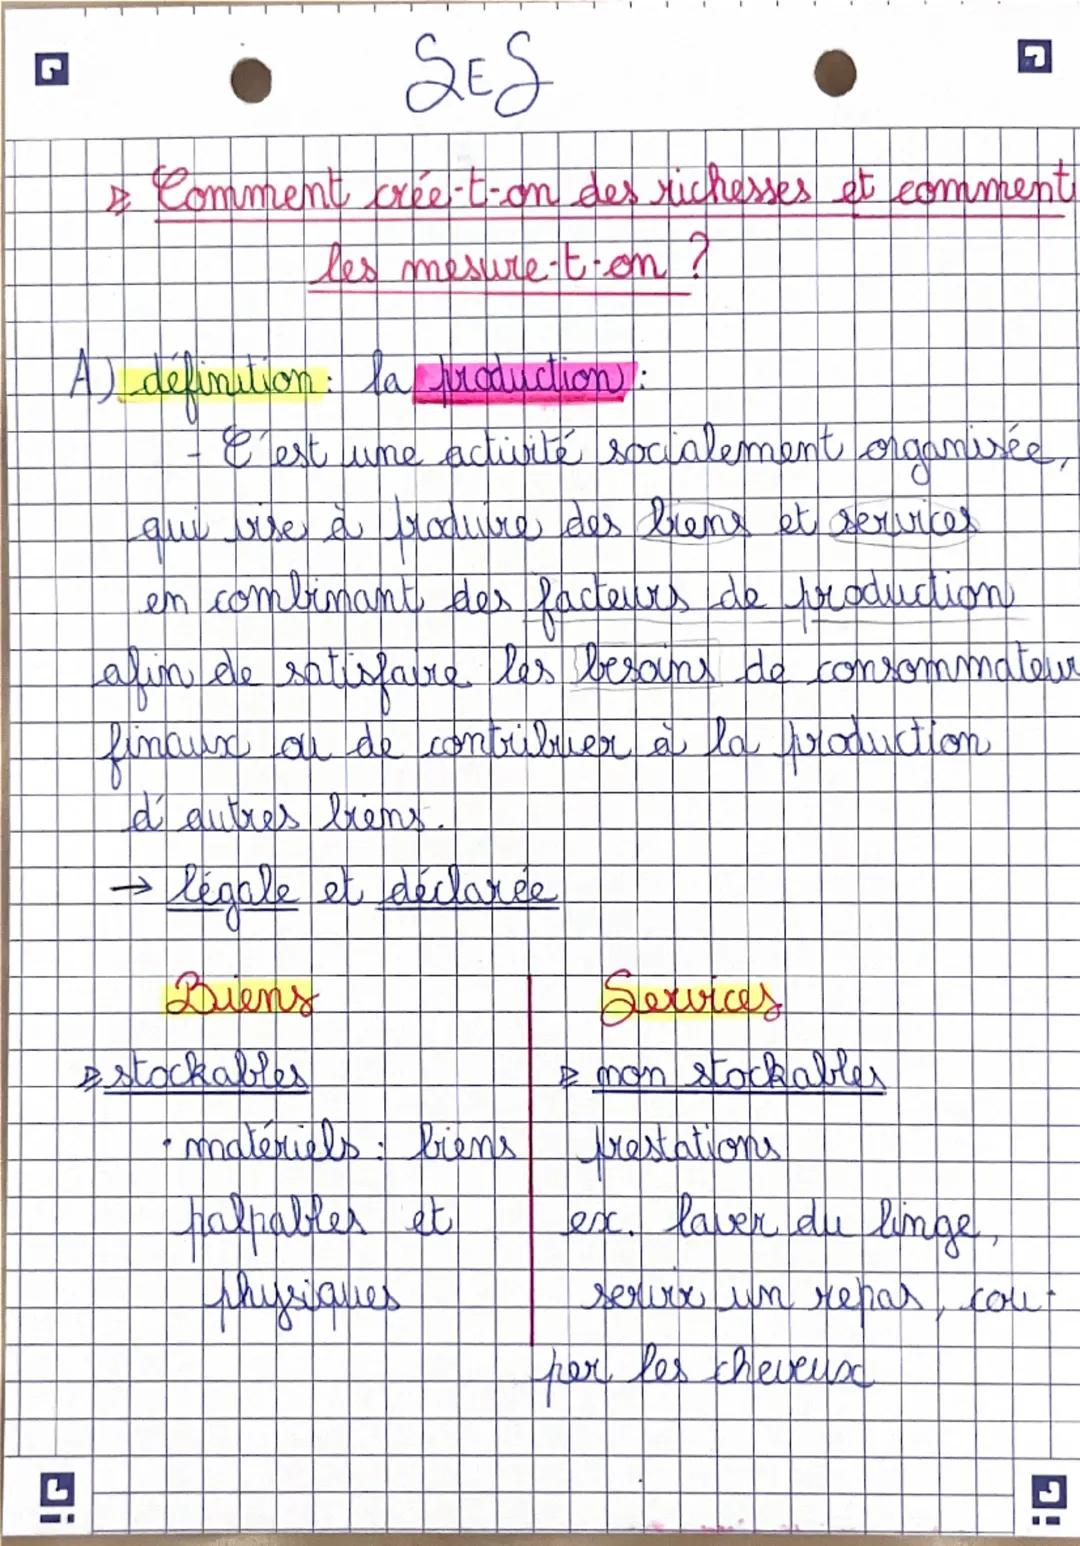 SES
Comment crée-t-on des richesses et comment
les mesure-t-on ?
A) définition : la production :
- C'est une activité socialement organisée,
qui vise à produire des biens et services
en combinant des facteurs de production
afin de satisfaire les besoins de consommateur
finaux ou de contribuer à la production
d'autres biens.
→ légale et déclarée
Biens
stockables
• matériels : biens
palpables et
physiques
Services
non stockables
prestations
ex. laver du linge,
servir un repas, cou-
per les cheveux